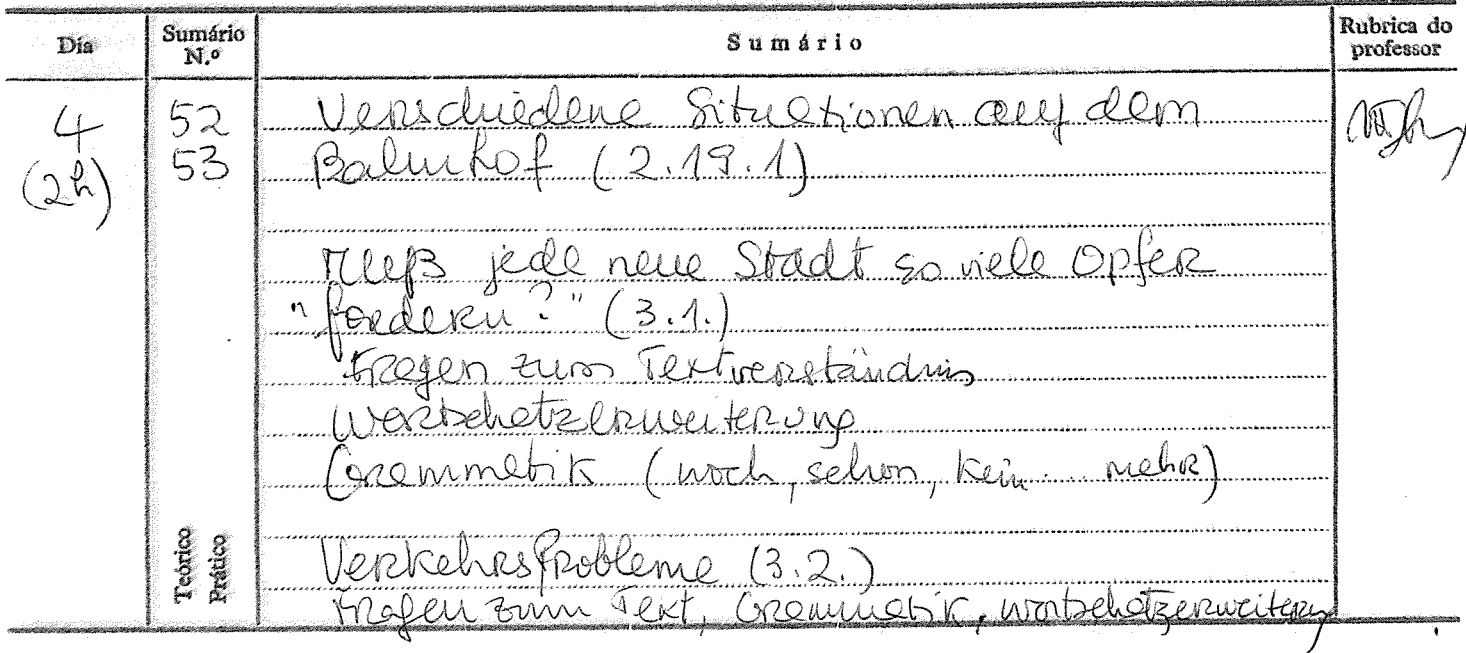 Dia Sumário N.º Sumário Rubrica do professor
4 52 Verschiedene Situationen auf dem
(2h) 53 Bahnhof (2.19.1)
Muß jede neue Stadt so viele Opfer
"fordern?" (3.1.)
Fragen zum Textverständnis
Wortschatzerweiterung
Grammatik (noch, schon, kein ... mehr)
Teórico Prático
Verkehrsprobleme (3.2.)
Fragen zum Text, Grammatik, Wortschatzerweiterung